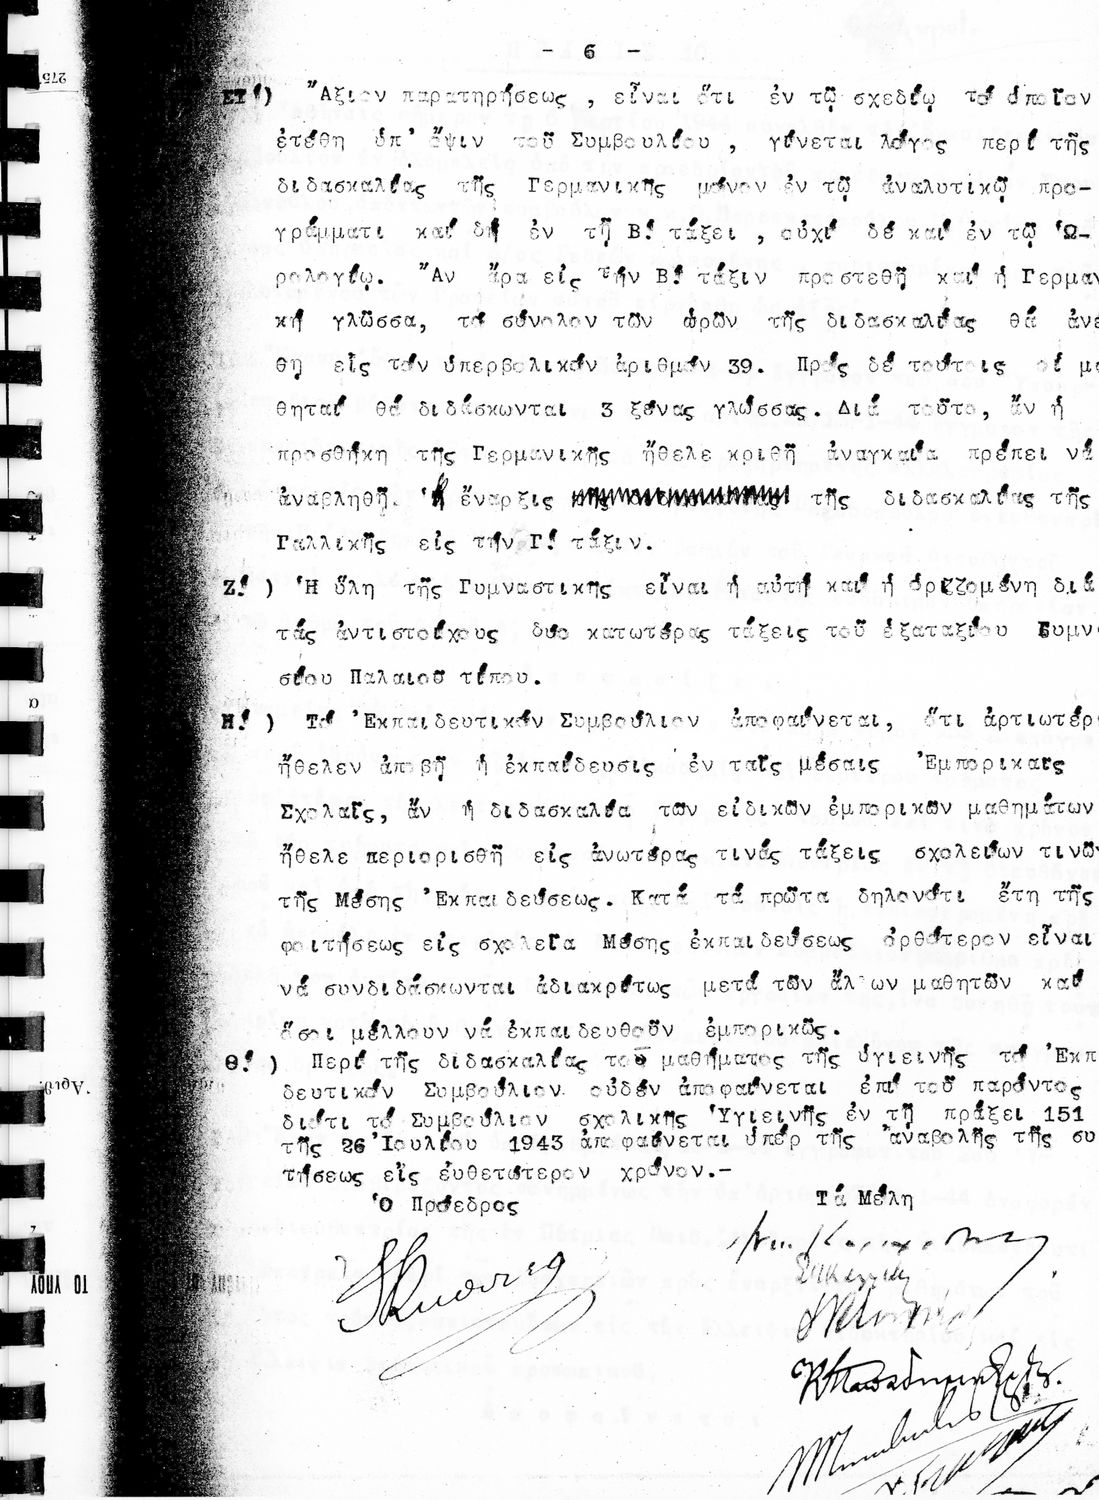 - 6 -
ΣΤ!) Ἄξιον παρατηρήσεως , εἶναι ὅτι ἐν τῷ σχεδίῳ τό ὁποῖον
ἐτέθη ὑπ' ὄψιν τοῦ Συμβουλίου , γίνεται λόγος περί τῆς
διδασκαλίας τῆς Γερμανικῆς μόνον ἐν τῷ ἀναλυτικῷ προ-
γράμματι καί δή ἐν τῇ Β! τάξει , οὐχί δέ καί ἐν τῷ Ὡ-
ρολογίῳ. Ἄν ἄρα εἰς τήν Β! τάξιν προστεθῇ καί ἡ Γερμαν
κή γλῶσσα, τό σύνολον τῶν ὡρῶν τῆς διδασκαλίας θά ἀνέ
θη εἰς τόν ὑπερβολικόν ἀριθμόν 39. Πρός δέ τούτοις οἱ μα
θηταί θά διδάσκωνται 3 ξένας γλώσσας. Διά τοῦτο, ἄν ἡ
προσθήκη τῆς Γερμανικῆς ἤθελε κριθῇ ἀναγκαία πρέπει νά
ἀναβληθῇ. Ἡ ἔναρξις τῆς διδασκαλίας τῆς
Γαλλικῆς εἰς τήν Γ! τάξιν.
Ζ! ) Ἡ ὕλη τῆς Γυμναστικῆς εἶναι ἡ αὐτή καί ἡ ὁριζομένη διά
τάς ἀντιστοίχους δυο κατωτέρας τάξεις τοῦ ἑξαταξίου Γυμνα
σίου Παλαιοῦ τύπου.
Η! ) Τό Ἐκπαιδευτικόν Συμβούλιον ἀποφαίνεται, ὅτι ἀρτιωτέρ
ἤθελεν ἀποβῇ ἡ ἐκπαίδευσις ἐν ταῖς μέσαις Ἐμπορικαις
Σχολαῖς, ἄν ἡ διδασκαλία τῶν εἰδικῶν ἐμπορικῶν μαθημάτων
ἤθελε περιορισθῇ εἰς ἀνωτέρας τινάς τάξεις σχολείων τινῶν
τῆς Μέσης Ἐκπαιδεύσεως. Κατά τά πρῶτα δηλονότι ἔτη τῆς
φοιτήσεως εἰς σχολεῖα Μέσης ἐκπαιδεύσεως ὀρθότερον εἶναι
νά συνδιδάσκωνται ἀδιακρίτως μετά τῶν ἄλλων μαθητῶν καί
ὅσοι μέλλουν νά ἐκπαιδευθοῦν ἐμπορικῶς.
Θ! ) Περί τῆς διδασκαλίας τοῦ μαθήματος τῆς ὑγιεινῆς τό Ἐκπ
δευτικόν Συμβούλιον οὐδέν ἀποφαίνεται ἐπί τοῦ παρόντος
διότι τό Συμβούλιον σχολικῆς Ὑγιεινῆς ἐν τῇ πράξει 151
τῆς 26 Ἰουλίου 1943 ἀποφαίνεται ὑπέρ τῆς ἀναβολῆς τῆς συ
τήσεως εἰς εὐθετώτερον χρόνον.-
Ὁ Πρόεδρος Τά Μέλη
ΤΟ ΥΠΟΥ